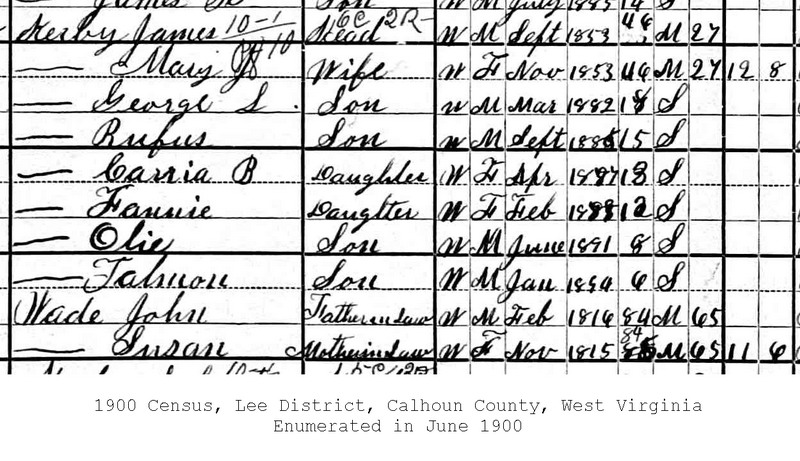 James Son W M July 1885 14 S
Kerby James 10-1 Head W M Sept 1853 46 M 27
— Mary Wife W F Nov 1853 46 M 27 12 8
— George L. Son W M Mar 1882 18 S
— Rufus Son W M Sept 15 S
— Carria B Daughter W F Apr 1887 13 S
— Fannie Daughter W F Feb 1888 12 S
— Olie Son W M June 1891 8 S
— Talmon Son W M Jan 1894 6 S
Wade John Father in Law W M Feb 1816 84 M 65
— Susan Mother in Law W F Nov 1815 84 M 65 11 6
1900 Census, Lee District, Calhoun County, West Virginia
Enumerated in June 1900